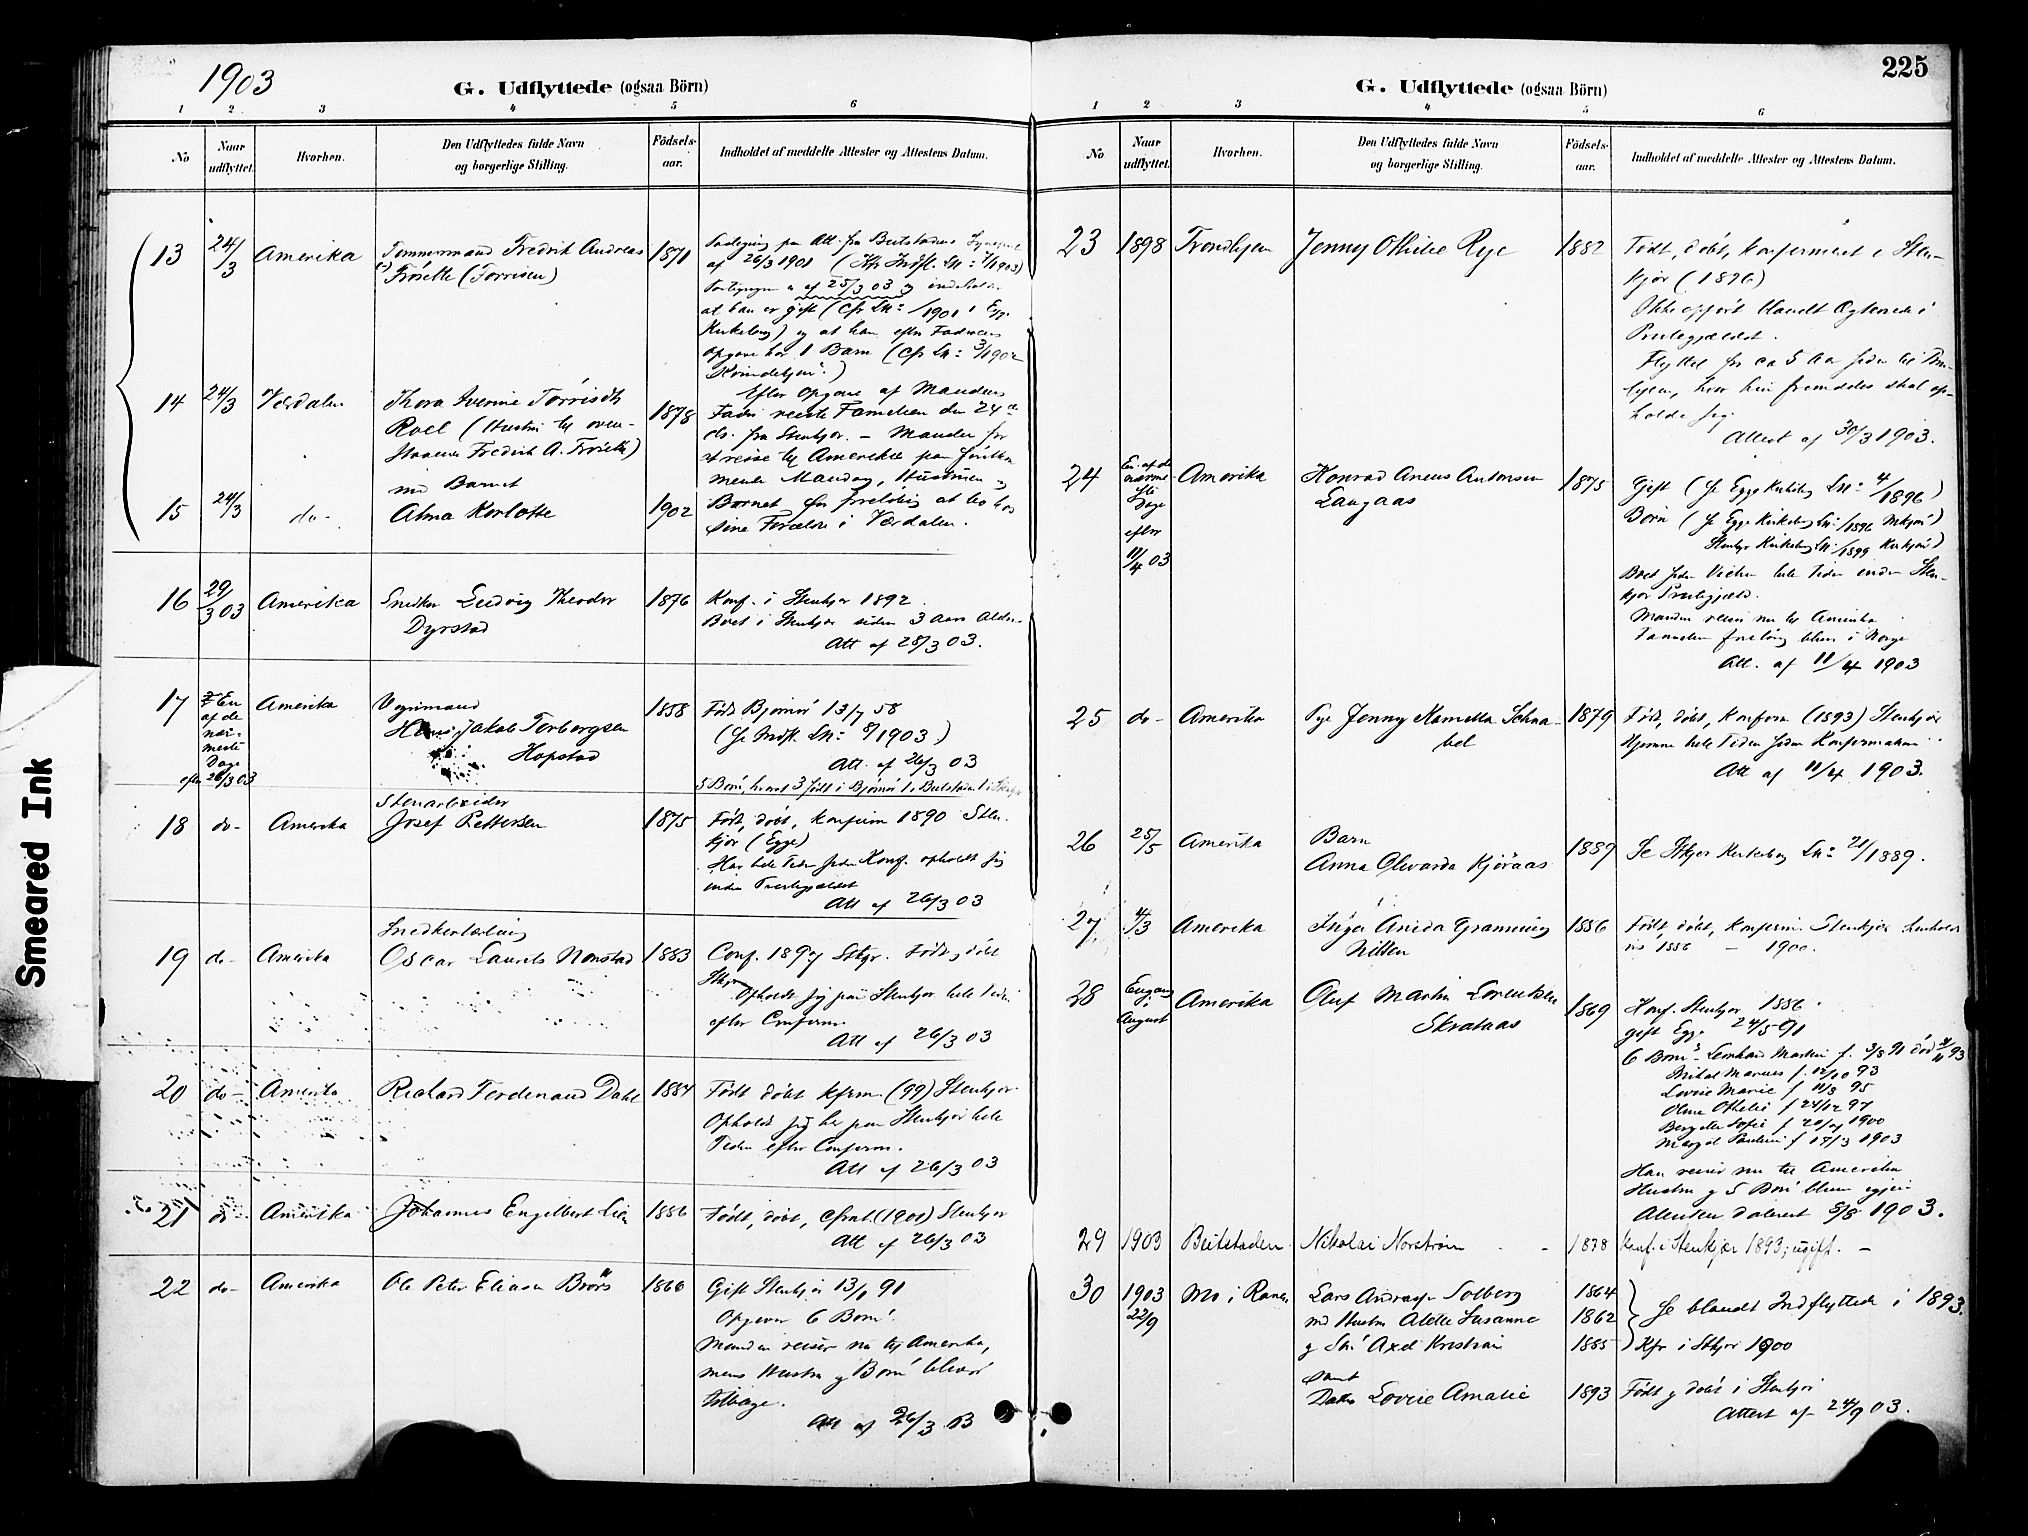 1903
G. Udflyttede (ogsaa Börn)
1 2 3 4 5 6
No
Naar udflyttet.
Hvorhen.
Den Udflyttedes fulde Navn og borgerlige Stilling.
Födsels-aar.
Indholdet af meddelte Attester og Attestens Datum.
13 24/3 Amerika Tømmermand Fredrik Andreas 1871
Frösette (Torrisen)
af 26/3 1901
af 25/3 03
at han er gift
Kirkebog) og at han efter Faderens
Opgave har 1 Barn
Efter Opgave af Mandens
14 24/3 Værdalen Thora Averine Torrisdtr 1878
Roel (Hustru til oven-
staaende Fredrik A. Frösette)
Fader reiste Familien den 24de
ds. fra Stenkjær. - Manden for
at reise til Amerika
Mandag, Hustruen og
med Barnet
15 24/3 do- Alma Karlotte 1902
Barnet for foreløbig at bo hos
sine Forældre i Værdalen.
16 29/3 03 Amerika Snedker Ludvig Theodor 1876
Dyrstad
Konf. i Stenkjær 1892.
Boet i Stenkjær siden 3 Aars Alder
Att af 28/3 03.
17 En af de nærmeste Dage efter 26/3 03 Amerika Vognmand 1858
Hans Jakob Torbergsen
Hopstad
Født Bjørnør 13/7 58
(Se Indfl. Ln: 8/1903)
Att. af 26/3 03
5 Børn, hvoraf 3 født i Bjørnør 1 i Beitstaden 1 i Stenkjær
18 do- Amerika Stenarbeider
Josef Pettersen 1875
Født, døbt, konfirm 1890 Sten-
kjær (Egge)
Har hele Tiden siden Konf. opholdt sig
inden Præstegjældet
Att af 26/3 03
19 do- Amerika Snedkerlærling
Oscar Laurits Nonstad 1883
Conf. 1897 Stkjr. Født og døbt
Stkjr
Opholdt sig paa Stenkjær hele Tiden
efter Confirm.
Att af 26/3 03
20 do- Amerika Richard Ferdenand Dahl 1884
Født døbt kfrm. (99) Stenkjær.
Opholdt sig her paa Stenkjær hele
Tiden efter Confirm.
Att af 26/3 03
21 do- Amerika Johannes Engelbert Lien 1886
Født, døbt, cfrmt (1901) Stenkjær
Att af 26/3 03
22 do- Amerika Ole Peter Eliasen Brørs 1866
Gift Stenkjær 91
Opgiver 6 Børn.
Manden reiser nu til Amerika,
mens Hustru og Børn bliver
tilbage.
Att af 26/3 03
225
G. Udflyttede (ogsaa Börn)
1 2 3 4 5 6
No
Naar udflyttet.
Hvorhen.
Den Udflyttedes fulde Navn og borgerlige Stilling.
Födsels-aar.
Indholdet af meddelte Attester og Attestens Datum.
23 1898 Trondhjem Jenny Othilie Rye 1882
Født, døbt, konfirmeret i Sten-
kjær (1896)
Ikke opført blandt Ægteviede i
Præstegjældet.
Flyttet for ca 5 Aar siden til Trond-
hjem, hvor hun fremdeles skal op-
holde sig
Attest af 30/3 1903.
24 En af de nærmeste Dage efter 11/4 03 Amerika Konrad Areus Antonsen 1875
Langaas
Gift (Se Egge Kirkebog Ln: 4/1896)
Børn (Se Egge Kirkebog Ln: /1896 Mkjøn)
Stenkjær Kirkebog Ln: /1899 Kvkjøn)
Boet siden Vielsen hele Tiden inden Sten-
kjær Præstegjæld.
Manden reiser nu til Amerika
Familien foreløbig bliver i Norge
Att. af 11/4 1903
25 do- Amerika Pige Jenny Kamilla Schna- 1879
bel
Født, døbt, konfirm (1893) Stenkjær
Hjemme hele Tiden siden Konfirmationen
Att af 11/4 1903.
26 25/5 Amerika Barn
Anna Olevarda Kjøraas 1889
Se Stkjær Kirkebog Ln: 21/1889.
27 4/3 Amerika Inga Anida Granning 1886
Nilsen
Født døbt, konfirm. Stenkjær
1886 - 1900.
28 Engang i August Amerika Oluf Martin Lorentsen 1869
Skrataas
Konf. Stenkjær 1886.
gift Egge 24/5 91
6 Børn: Lenhard Martin f. 3/8 91 død 93
Marius f. 12/10 93
Lovise Marie f 11/3 95
Oline Othelie f 24/12 97
Bergitte Sofie f 1900
Margit Pauline f 17/3 1903
Han reiser nu til Amerika
Hustru og 5 Børn bliver igjen
Attesten dateret 5/8 1903.
29 1903 Beitstaden Nikolai Norstrøm 1878
Konf. i Stenkjær 1893; ugift. -
30 1903 22/9 Mo i Ranen Lars Andreas Solberg 1864
md Hustru Alette Susanna 1862
Se blandt Indflyttede i 1893.
og Søn Axel Kristian 1885 Kfr i Stkjær 1900
samt
Datter Lovise Amalie 1893 Født og døbt i Stenkjær
Attest af 24/9 03.
Smeared Ink